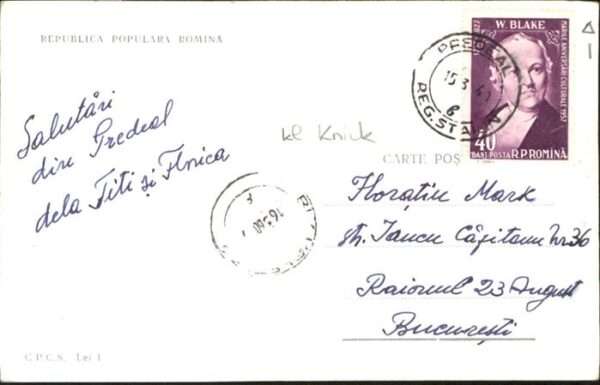 REPUBLICA POPULARA ROMINA
W. BLAKE
MARILE ANIVERSARI CULTURALE 1957
40
BANI POSTA R.P.ROMINA
PREDEAL
REG. STALIN
Salutări
din Predeal
dela Titi și Florica
kl Knick
CARTE POȘ
Florațiu Mark
Str. Iancu Căpitanu Nr 36
Raionul 23 August
București
C.P.C.S. Lei 1